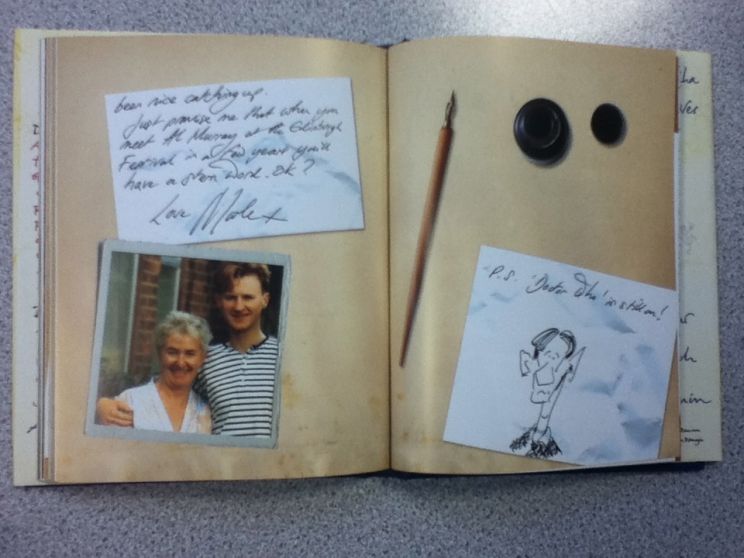 been nice catching up.
Just promise me that when you
meet Al Murray at the Edinburgh
Festival in a few years you'll
have a stern word. OK?
Love Mark x
P.S. 'Doctor Who' is still on!